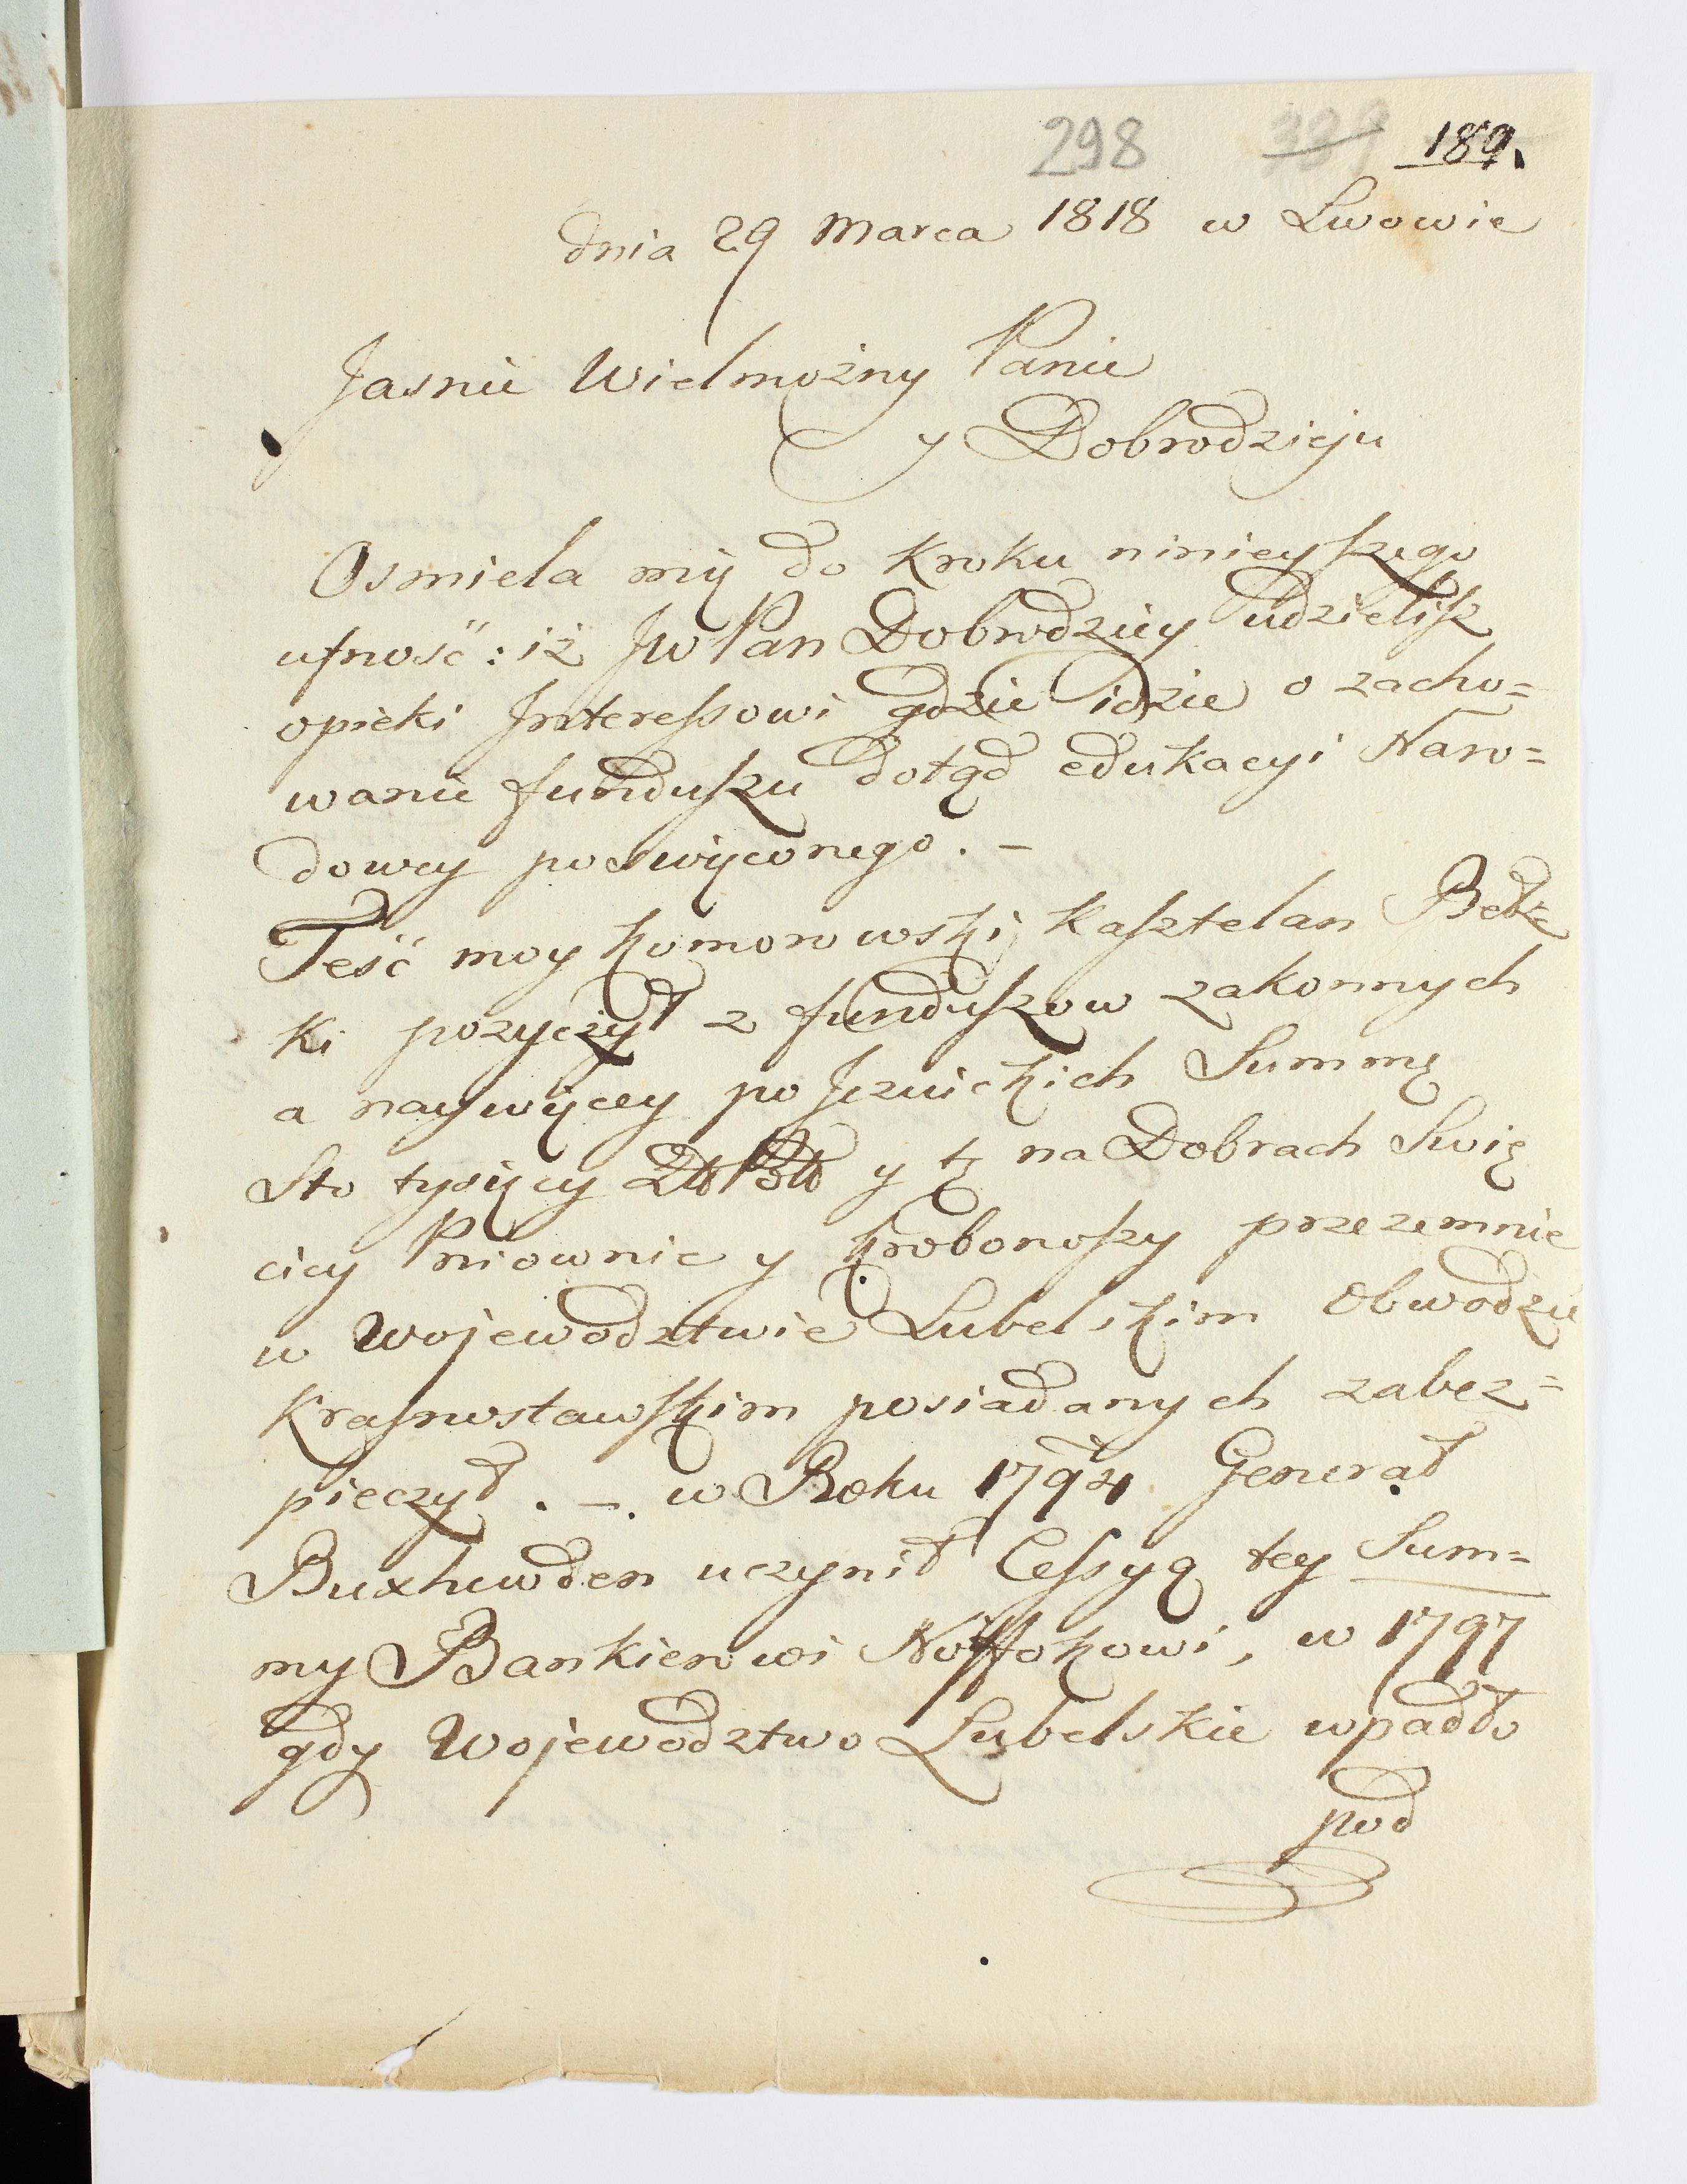 298 389 189.
dnia 29 Marca 1818 w Lwowie
Jasnie Wielmożny Panie
y Dobrodzieju
Osmiela mię do kroku ninieyszego
ufność: iż JW Pan Dobrodziey udzielisz
opieki Interessowi gdzie idzie o zacho=
wanie funduszu dotąd edukacyi Naro=
dowey poswięconego. —
Teść moy Komorowski Kasztelan Bełz
ki pozyczył z funduszow zakonnych
a naywięcey po Jezuickich Summę
Sto tysięcy y tę na Dobrach Swię
cicy Pniownie y Krobonoszy przezemnie
w Wojewodztwie Lubelskim Obwodzie
Krasnostawskim posiadanych zabez=
pieczył. —. w Roku 1794 Generał
Buxhewden uczynił Cessyą tey Sum=
my Bankierowi Noffokowi, w 1797
gdy Wojewodztwo Lubelskie wpadło
pod